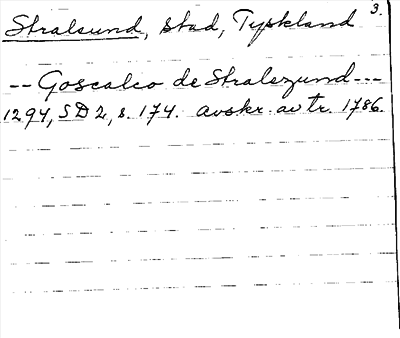 3.
Stralsund, stad, Tyskland
-- Goscalco de Stralezund ---
1294, SD 2, s. 174. avskr. av tr. 1786.